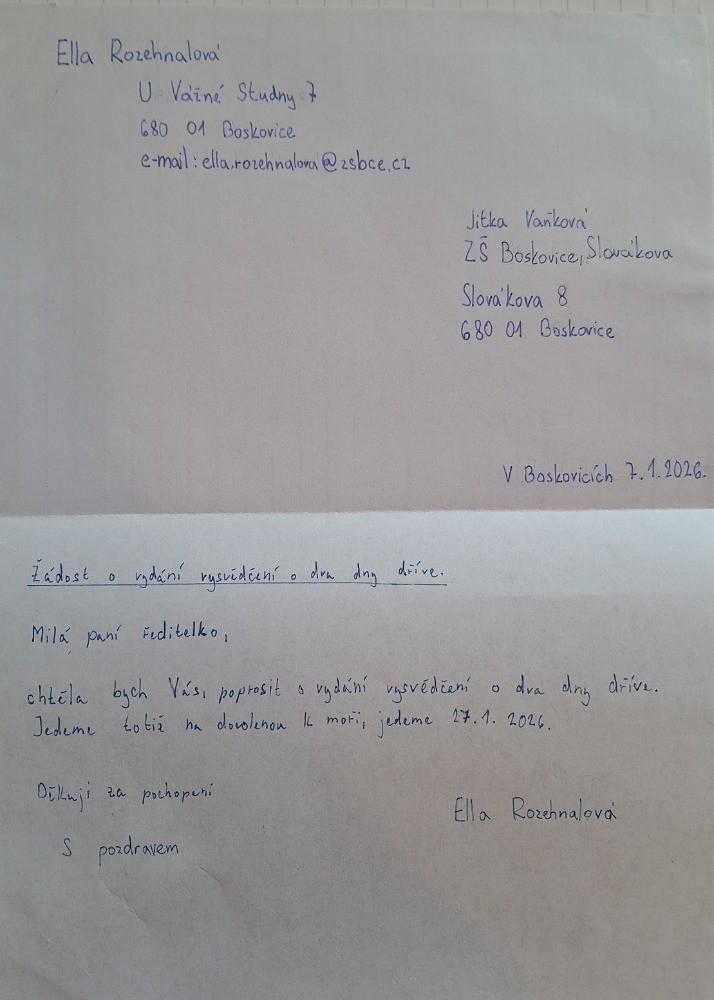 Ella Rozehnalová
U Vážné Studny 7
680 01 Boskovice
e-mail: ella.rozehnalova@zsbce.cz
Jitka Vaňková
ZŠ Boskovice, Slovákova
Slovákova 8
680 01 Boskovice
V Boskovicích 7.1.2026.
Žádost o vydání vysvědčení o dva dny dříve.
Milá paní ředitelko,
chtěla bych Vás, poprosit o vydání vysvědčení o dva dny dříve.
Jedeme totiž na dovolenou k moři, jedeme 27.1. 2026.
Děkuji za pochopení
Ella Rozehnalová
S pozdravem